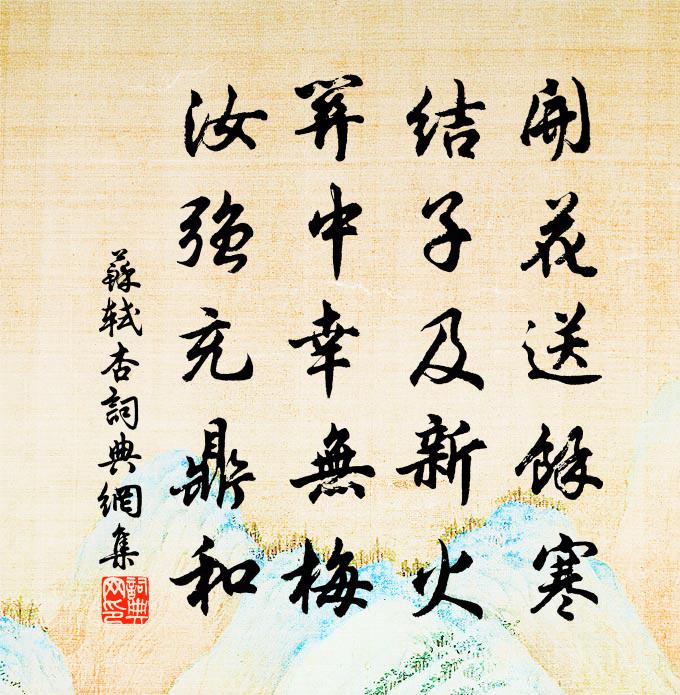 開花送餘寒
結子及新火
關中幸無梅
汝強充鼎和
蘇軾杏詞典網集
詞典
网印